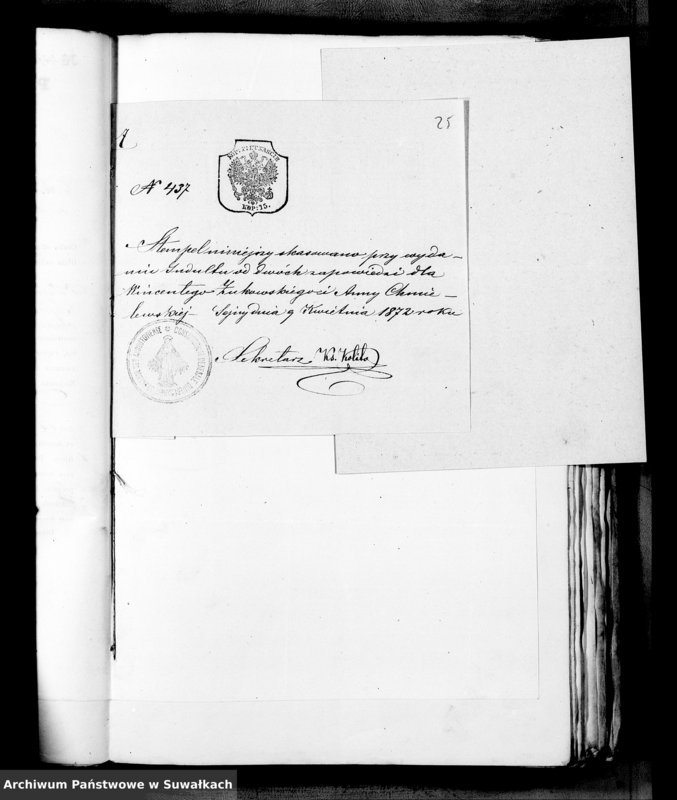 25
N 437
КОП: 15.
Stempel niniejszy skasowano przy wyda-
niu Indultu od dwóch zapowiedzi dla
Wincentego Żukowskiego i Anny Chmie-
lewskiej Sejny dnia 9 Kwietnia 1872 roku
Sekretarz
Archiwum Państwowe w Suwałkach